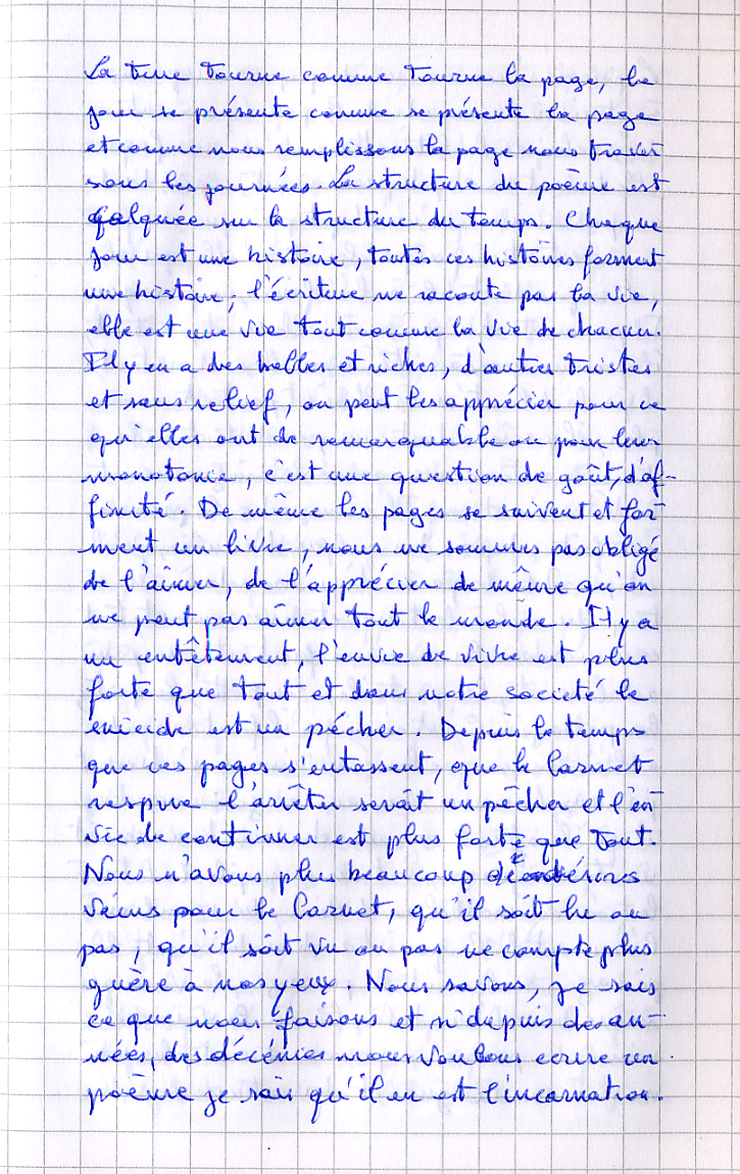 La terre tourne comme tourne la page, le
jour se présente comme se présente la page
et comme nous remplissons la page nous traver
sons les journées. La structure du poème est
calquée sur la structure du temps. Chaque
jour est une histoire, toutes ces histoires forment
une histoire, l'écriture ne raconte pas la vie,
elle est une vie tout comme la vie de chacun.
Il y en a des belles et riches, d'autres tristes
et sans relief, on peut les apprécier pour ce
qu'elles ont de remarquable ou pour leur
monotonie, c'est une question de goût, d'af-
finité. De même les pages se suivent et for
ment un livre, nous ne sommes pas obligé
de l'aimer, de l'apprécier de même qu'on
ne peut pas aimer tout le monde. Il y a
un entêtement, l'envie de vivre est plus
forte que tout et dans notre société le
suicide est un pécher. Depuis le temps
que ces pages s'entassent, que le Carnet
respire l'arrêter serait un pécher et l'en
vie de continuer est plus forte que tout.
Nous n'avons plus beaucoup de désirs
vains pour le Carnet, qu'il soit lu ou
pas, qu'il soit vu ou pas ne compte plus
guère à nos yeux. Nous savons, je sais
ce que nous faisons et si depuis des an-
nées, des décénies nous voulons ecrire un
poème je sais qu'il en est l'incarnation.